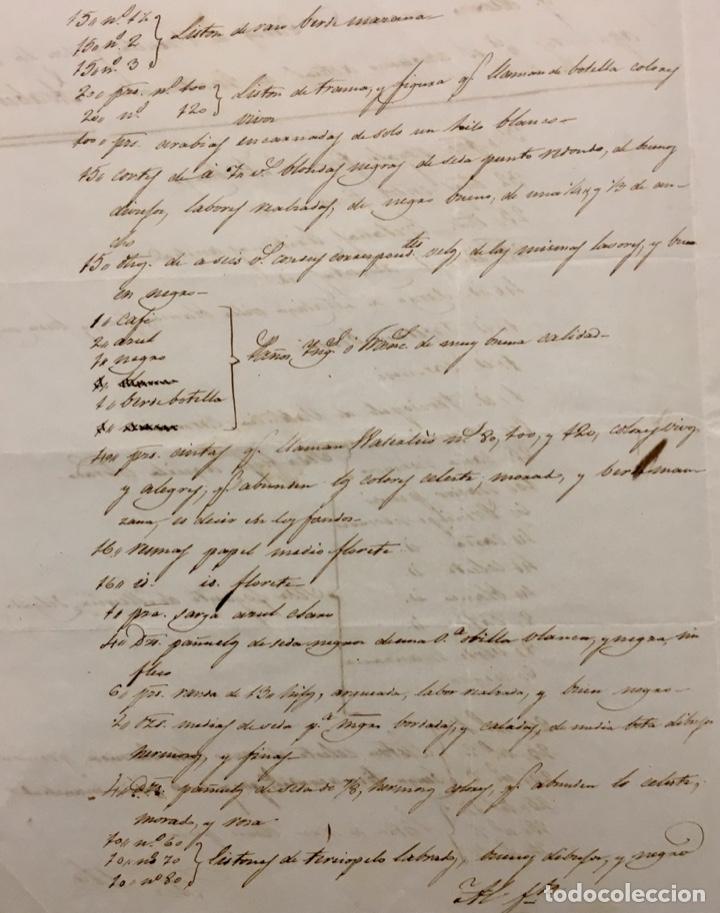 15,, nº. 1½
15,, nº. 2 } Liston de raso berde manzana
15,, nº. 3
20,, pzs. nº. 100 } Liston de trama, y figura q.e llaman de botella colores
20,, nº. 120 vivos
100,, pzs. arabias encarnadas de solo un hilo blanco
15,, cortes de á 7 v.s blondas negras de seda punto redondo, de buenos
dibujos, labores realzadas, de negro bueno, de una ¼ y ⅓ de an-
cho
15,, de a seis v.s con sus correspond.tes de las mismas labores, y buen
en negro
1,, café
2,, azul
7,, negro
1,, berde botella
} Paños Yng.s ó Franc.s de muy buena calidad
40,, pzs. cintas q.e llaman nº. 80, 100, y 120, colores vivos
y alegres, q.e abunden los colores celeste, morado, y berde man-
zana, es decir en los fondos
16,, resmas papel medio florete
16,, id. id. florete
1,, pza. sarga azul claro
4,, Dzs. pañuelos de seda negros de una v.a orilla blanca, y negra, sin
fleco
6,, pzs. renda de 130 hilos, arqueada, labor realzada, y bien negro
2,, Dzs. medias de seda p.a bordadas, y caladas, de media bota dibujos
hermosos, y finas
4,, Dzs. pañuelos de seda de ⅞, hermosos colores, q.e abunden lo celeste,
morado, y rosa
10,, nº. 60
10,, nº. 70 } Listones de terciopelo labrado, buenos dibujos, y negro
10,, nº. 80
Al f.te
todocoleccion